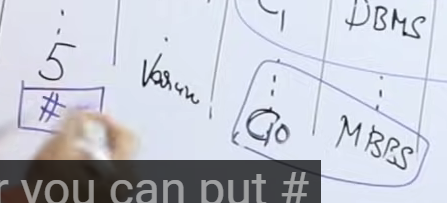 C1 DBMS
5 Varun C10 MBBS
#
r you can put #